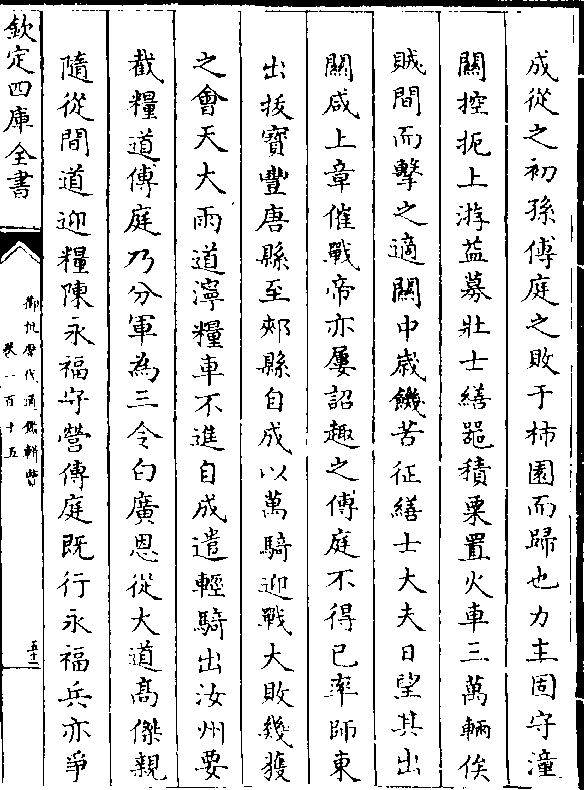 成從之初孫傅庭之敗于柿園而歸也力主固守潼
關控扼上游益募壯士繕器積粟置火車三萬輛俟
賊間而擊之適關中歳饑苦征繕士大夫日望其出
關咸上章催戰帝亦屢詔趣之傅庭不得已率師東
出抜寶豐唐縣至郟縣自成以萬騎迎戰大敗幾獲
之會天大雨道濘糧車不進自成遣輕騎出汝州要
截糧道傅庭乃分軍為三令白廣恩從大道髙傑親
隨從間道迎糧陳永福守營傅庭既行永福兵亦爭
欽定四庫全書
御批歷代通鑑輯覽
卷一百十五
五十二